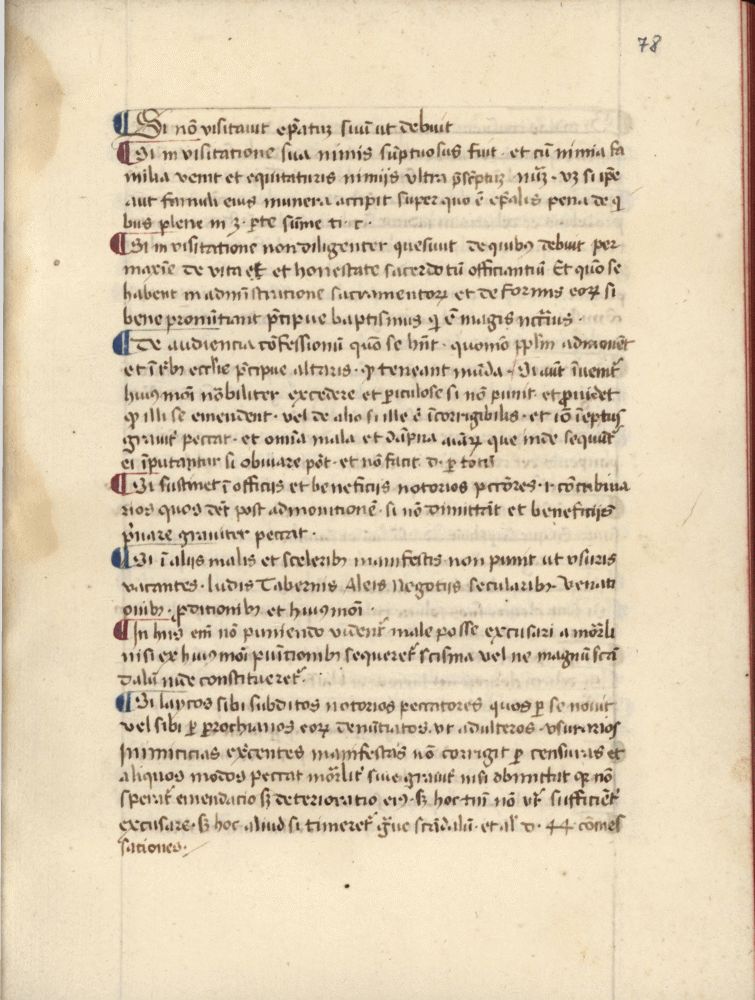 78
¶ Si nō visitauit ep̄atū suū ut debuit
¶ Si in visitatione sua nimis sūptuosus fuit · et cū nimia fa
milia venit et equitaturis nimijs ultra p̄sc̄ptū nūꝫ · vꝫ si ip̄e
aut famuli eius munera accipit super quo ē ep̄alis pena de q̄
bus plene in 3 · p̄te sūme ti · c ·
¶ Si in visitatione non diligenter quesiuit de quibꝰ debuit per
maxīe de vita et honestate sacerdotū officiantiū Et quō se
habent in administratione sacramentoꝝ et de formis eoꝝ si
bene pronūtiant p̄cipue baptismus q̄ ē magis nc̄c̄rius ·
¶ De audiencia cōfessionū quō se hn̄t · quomō pp̄lm admonēt
et ī reb̄ ecclīe p̄cipue altaris · ꝙ teneant mūda · Si aut īuenit̄
huiꝰmōi nōbiliter excedere et ꝑiculose si nō punit et prouidet
ꝙ illi se emendent · vel de alio si ille ē īcorrigibilis · et iō īeptus
grauit̄ peccat · et omīa mala et dāpna aīaꝝ que inde sequūt̄
ei īputantur si obuiare pōt · et nō facit d · ꝑ totū
¶ Si sustinet ī officijs et beneficijs notorios pctōres · ı · cōcubina
rios quos dēt post admonitionē · si nō dimittūt et beneficijs
p̄uare grauiter peccat ·
¶ Si ī alijs malis et sceleribꝰ manifestis non punit ut vsuris
vacantes · ludis Tabernis Aleis Negotijs secularibꝰ · Venati
onibꝰ · ꝓditionibꝰ et huiꝰmōi ·
¶ In hijs em̄ nō puniendo vident̄ male posse excusari a mōrli
nisi ex huiꝰmōi puītionibꝰ sequeret̄ scisma vel ne magnū scā
dalū inde constitueret̄ ·
¶ Si laycos sibi subditos notorios peccatores quos ꝑ se nouit
vel sibi ꝑ prochianos eoꝝ denūtiatos · ut adulteros · vsurarios
Inimicicias exc̄entes manifestas nō corrigit ꝑ censuras et
aliquos modos peccat mōrlit̄ siue grauit̄ nisi obmittat qꝛ nō
sperat̄ emendacio sꝫ deterioratio eiꝰ · sꝫ hoc tn̄ nō vr̄ sufficient̄
excusare · sꝫ hoc aliud si timeret̄ ḡue scādalū · et al̄ d · 44 cōmes
sationes ·